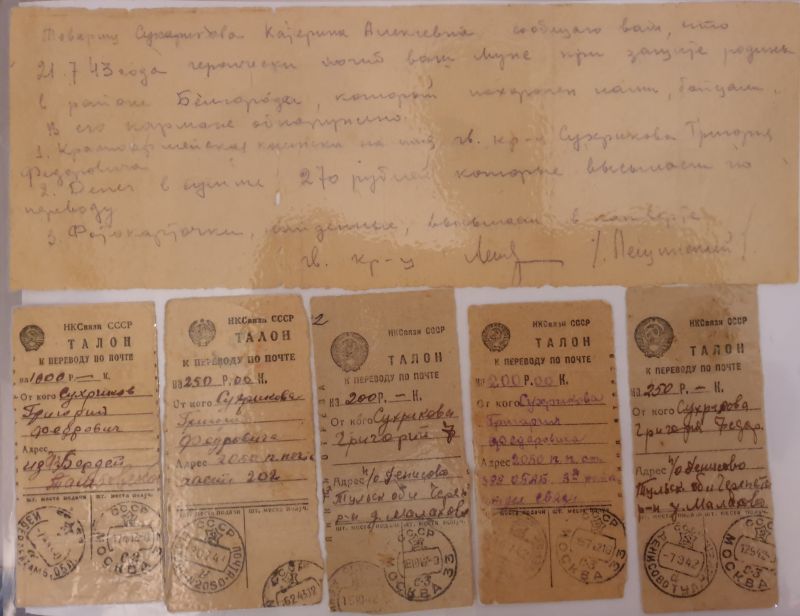 Товарищ Сухрикова Катерина Алексеевна сообщаю вам, что
21.7.43 года героически погиб ваш муж при защите родины
в районе Белгорода, который похоронен нами, бойцами.
В его кармане обнаружено
1. Красноармейская книжка на имя гв. кр-ц Сухрикова Григория
Федоровича
2. Денег в сумме 270 рублей которые высылаем по
переводу
3. Фотокарточки, найденные, высылаем в конверте
гв. кр-ц /Пещинский/
НКСвязи СССР
ТАЛОН
К ПЕРЕВОДУ ПО ПОЧТЕ
На 1000 Р. — К.
От кого Сухриков
Григория
Федорович
Адрес
шт. места подачи шт. места получ.
СССР
МОСКВА
НКСвязи СССР
ТАЛОН
К ПЕРЕВОДУ ПО ПОЧТЕ
на 250 Р. 00 К.
От кого Сухрикова
Григория
Федоровича
Адрес 2050
часть 202
шт. места подачи шт. места получ.
СССР
НКСвязи СССР
ТАЛОН
К ПЕРЕВОДУ ПО ПОЧТЕ
На 200 Р. — К.
От кого Сухрикова
Григорий Ф
Адрес п/о Денисово
Тульск обл Череп
р-н д. Малахово
СССР
МОСКВА
НКСвязи СССР
ТАЛОН
К ПЕРЕВОДУ ПО ПОЧТЕ
на 200 Р. 00 К.
От кого Сухрикова
Григория
Федоровича
Адрес 2050 п п ст
шт. места подачи шт. места получ.
СССР
МОСКВА
НКСвязи СССР
ТАЛОН
К ПЕРЕВОДУ ПО ПОЧТЕ
На 250 Р. — К.
От кого Сухрикова
Григория Федор
Адрес п/о Денисово
Тульск обл Черепет
р-н д. Малахов
СССР
МОСКВА